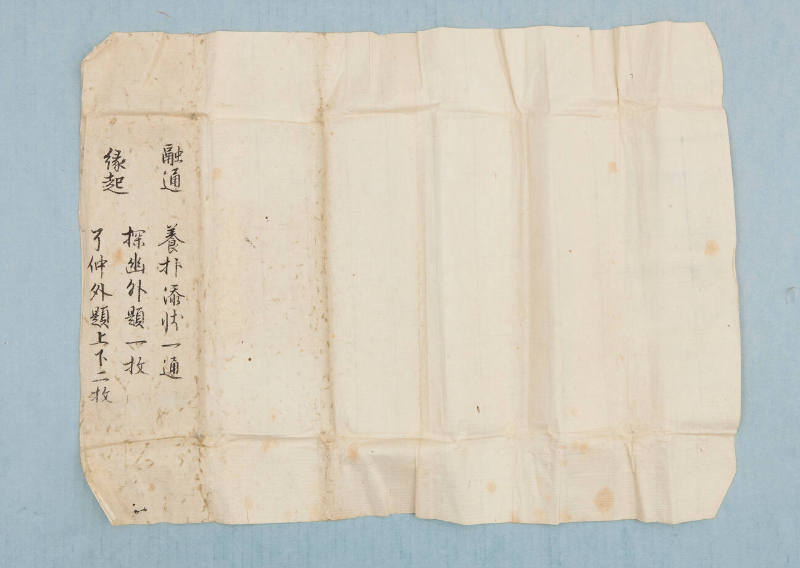 融通
縁起
養朴添状一通
探幽外題一枚
了仲外題上下二枚